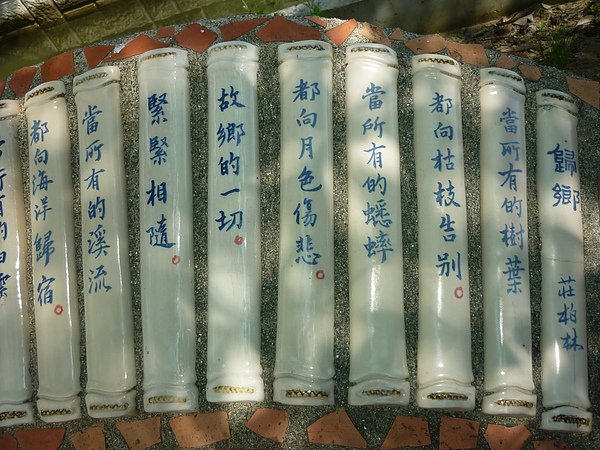 歸鄉 莊柏林
當所有的樹葉
都向枯枝告別
當所有的蟋蟀
都向月色傷悲
故鄉的一切
緊緊相隨
當所有的溪流
都向海洋歸宿
所有的白雲